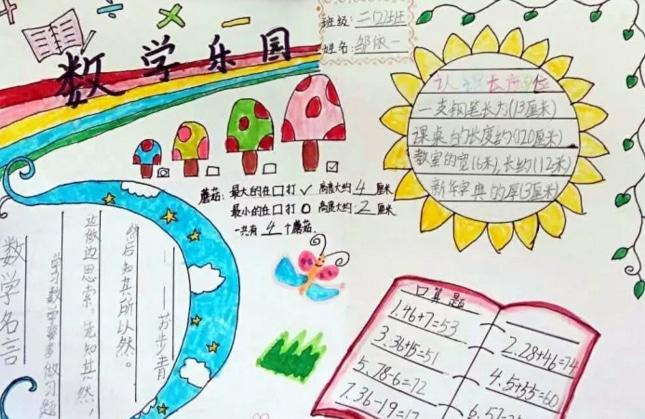 数学乐园
班级：二(2)班
姓名：邹依一
认识长度单位
一支钢笔长为(13厘米)
课桌的长度约(120厘米)
教室的宽(6米),长约(12米)
新华字典的厚(3厘米)
蘑菇：最大的在口打✓ 高度大约：4 厘米
最小的在口打O 高度大约：2 厘米
一共有 4 个蘑菇
数学名言
学习数学要多做习题
边做边思索，先知其然，
然后知其所以然。
——苏步青
口算题
1.46+7=53
2.28+46=74
3.36+15=51
4.5+55=60
5.78-6=72
7.36-19=17